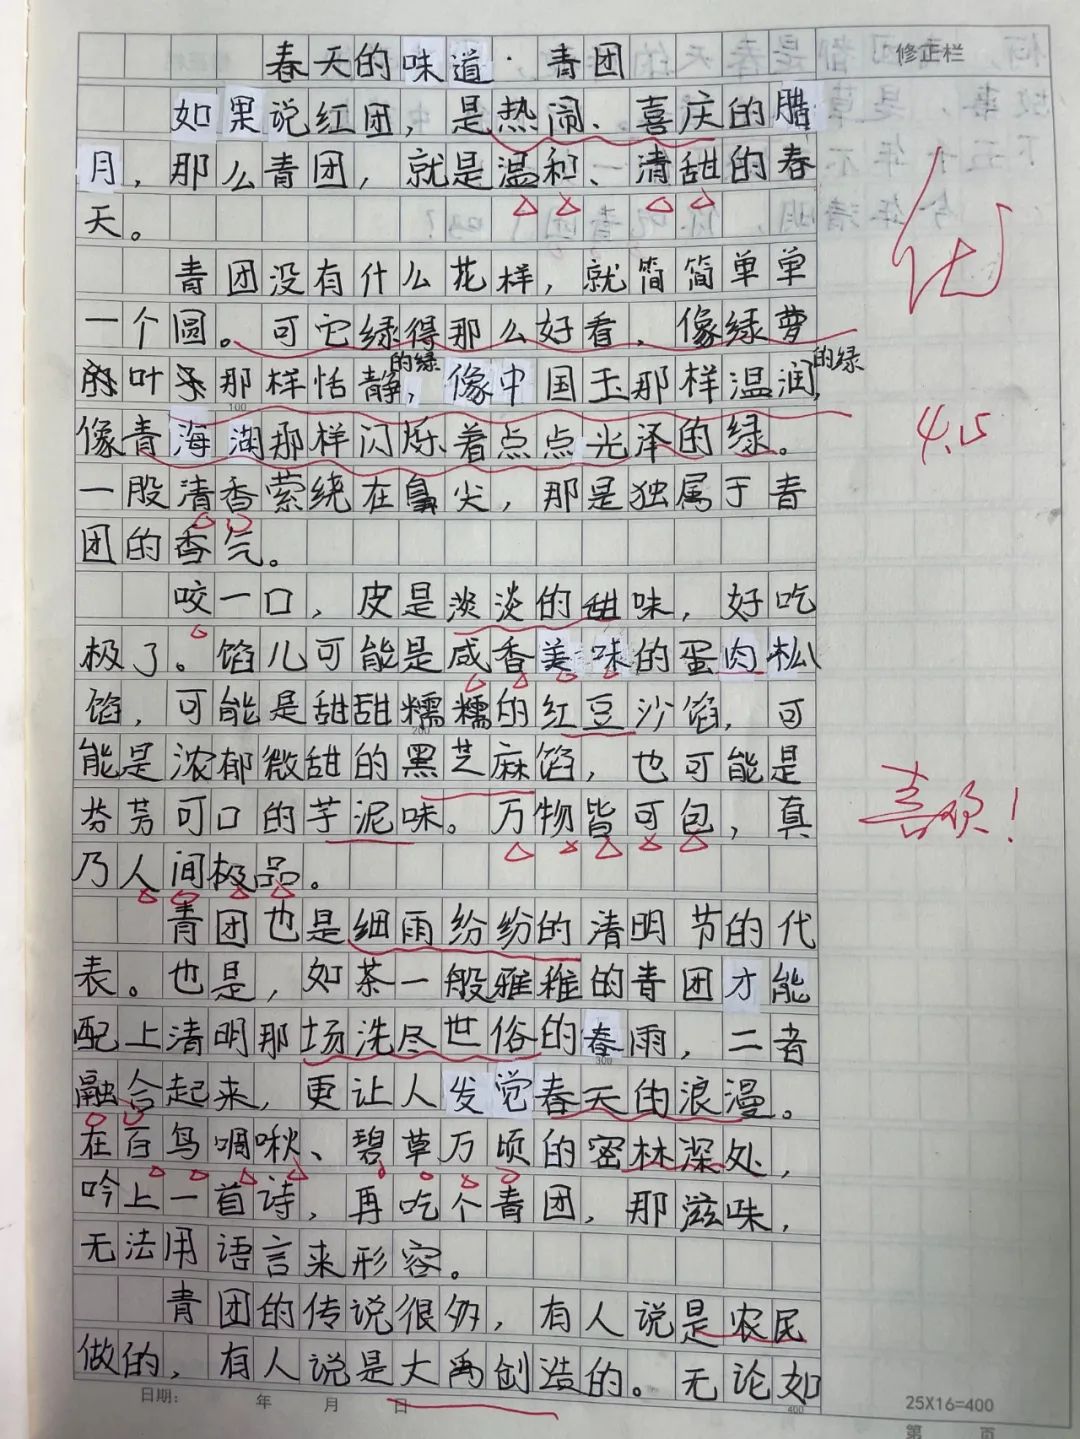 春天的味道·青团
修正栏
如果说红团，是热闹、喜庆的腊
月，那么青团，就是温和、清甜的春
天。
优
青团没有什么花样，就简简单单
一个圆。可它绿得那么好看，像绿萝
的叶子那样恬静的绿，像中国玉那样温润的绿，
4.15
像青海湖那样闪烁着点点光泽的绿。
一股清香萦绕在鼻尖，那是独属于青
团的香气。
咬一口，皮是淡淡的甜味，好吃
极了。馅儿可能是咸香美味的蛋肉松
馅，可能是甜甜糯糯的红豆沙馅，可
能是浓郁微甜的黑芝麻馅，也可能是
芬芳可口的芋泥味。万物皆可包，真
喜欢！
乃人间极品。
青团也是细雨纷纷的清明节的代
表。也是，如茶一般雅稚的青团才能
配上清明那场洗尽世俗的春雨，二者
融合起来，更让人发觉春天的浪漫。
在百鸟啁啾、碧草万顷的密林深处，
吟上一首诗，再吃个青团，那滋味，
无法用语言来形容。
青团的传说很多，有人说是农民
做的，有人说是大禹创造的。无论如
日期： 年 月 日
25X16=400
第 页
100
200
300
400